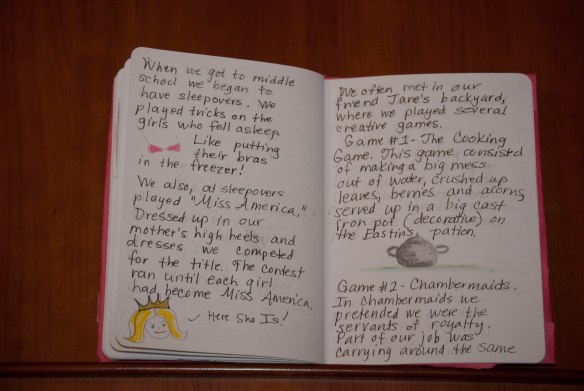 When we got to middle
school we began to
have sleepovers. We
played tricks on the
girls who fell asleep
Like putting
their bras
in the freezer!
We also, at sleepovers
played "Miss America."
Dressed up in our
mother's high heels and
dresses we competed
for the title. The contest
ran until each girl
had become Miss America.
Here She Is!
We often met in our
friend Jane's backyard,
where we played several
creative games.
Game #1- The Cooking
Game. This game consisted
of making a big mess
out of water, crushed up
leaves, berries and acorns
served up in a big cast
iron pot (decorative) on
the Eastin's pation.
Game #2- Chambermaids.
In chambermaids we
pretended we were the
servants of royalty.
Part of our job was
carrying around the same